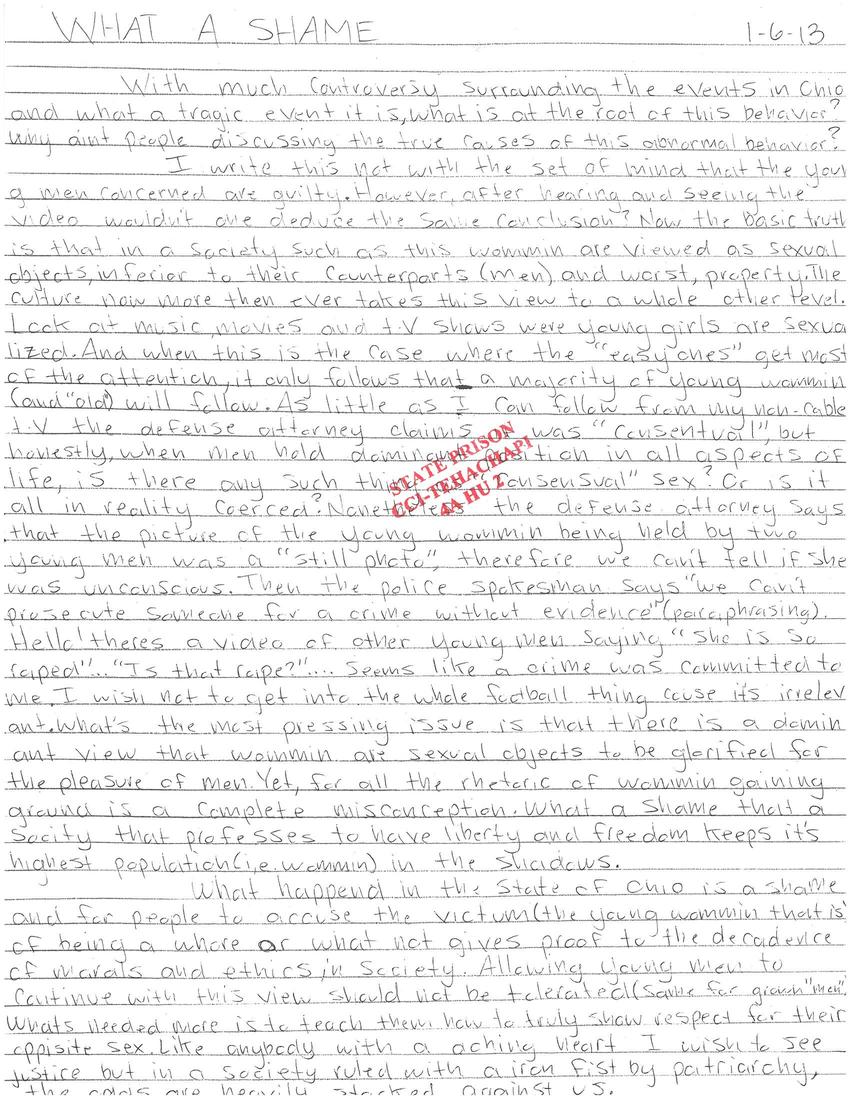 WHAT A SHAME 1-6-13
With much controversy surrounding the events in Ohio
and what a tragic event it is, what is at the root of this behavior?
Why aint people discussing the true causes of this abnormal behavior?
I write this not with the set of mind that the youn
g men concerned are guilty. However, after hearing and seeing the
video wouldn't one deduce the same conclusion? Now the basic truth
is that in a society such as this wommin are viewed as sexual
objects, inferior to their counterparts (men) and worst, property. The
culture now more then ever takes this view to a whole other level.
Look at music, movies and t.v shows were young girls are sexua
lized. And when this is the case where the "easy ones" get most
of the attention, it only follows that a majority of young wommin
(and "old") will follow. As little as I can follow from my non-cable
t.v the defense attorney claims was "consentual", but
honestly, when men hold dominant position in all aspects of
life, is there any such thing "consensual" sex? Or is it
all in reality coerced? Nonetheless the defense attorney says
that the picture of the young wommin being held by two
young men was a "still photo", therefore we can't tell if she
was unconscious. Then the police spokesman says "we can't
prosecute someone for a crime without evidence" (paraphrasing).
Hello! theres a video of other young men saying "she is so
raped"... "Is that rape?".... Seems like a crime was committed to
me. I wish not to get into the whole football thing cause it's irrelev
ant. What's the most pressing issue is that there is a domin
ant view that wommin are sexual objects to be glorified for
the pleasure of men. Yet, for all the rhetoric of wommin gaining
ground is a complete misconception. What a shame that a
socity that professes to have liberty and freedom keeps it's
highest population (i.e. wommin) in the shadows.
What happend in the State of Ohio is a shame
and for people to accuse the victum (the young wommin that is)
of being a whore or what not gives proof to the decadence
of morals and ethics in society. Allowing young men to
continue with this view should not be tolerated (same for grown "men".
Whats needed more is to teach them how to truly show respect for their
oppisite sex. Like anybody with a aching heart I wish to see
justice but in a society ruled with a iron fist by patriarchy,
the odds are heavily stacked against us.
STATE PRISON
CCI-TEHACHAPI
4A HU 2